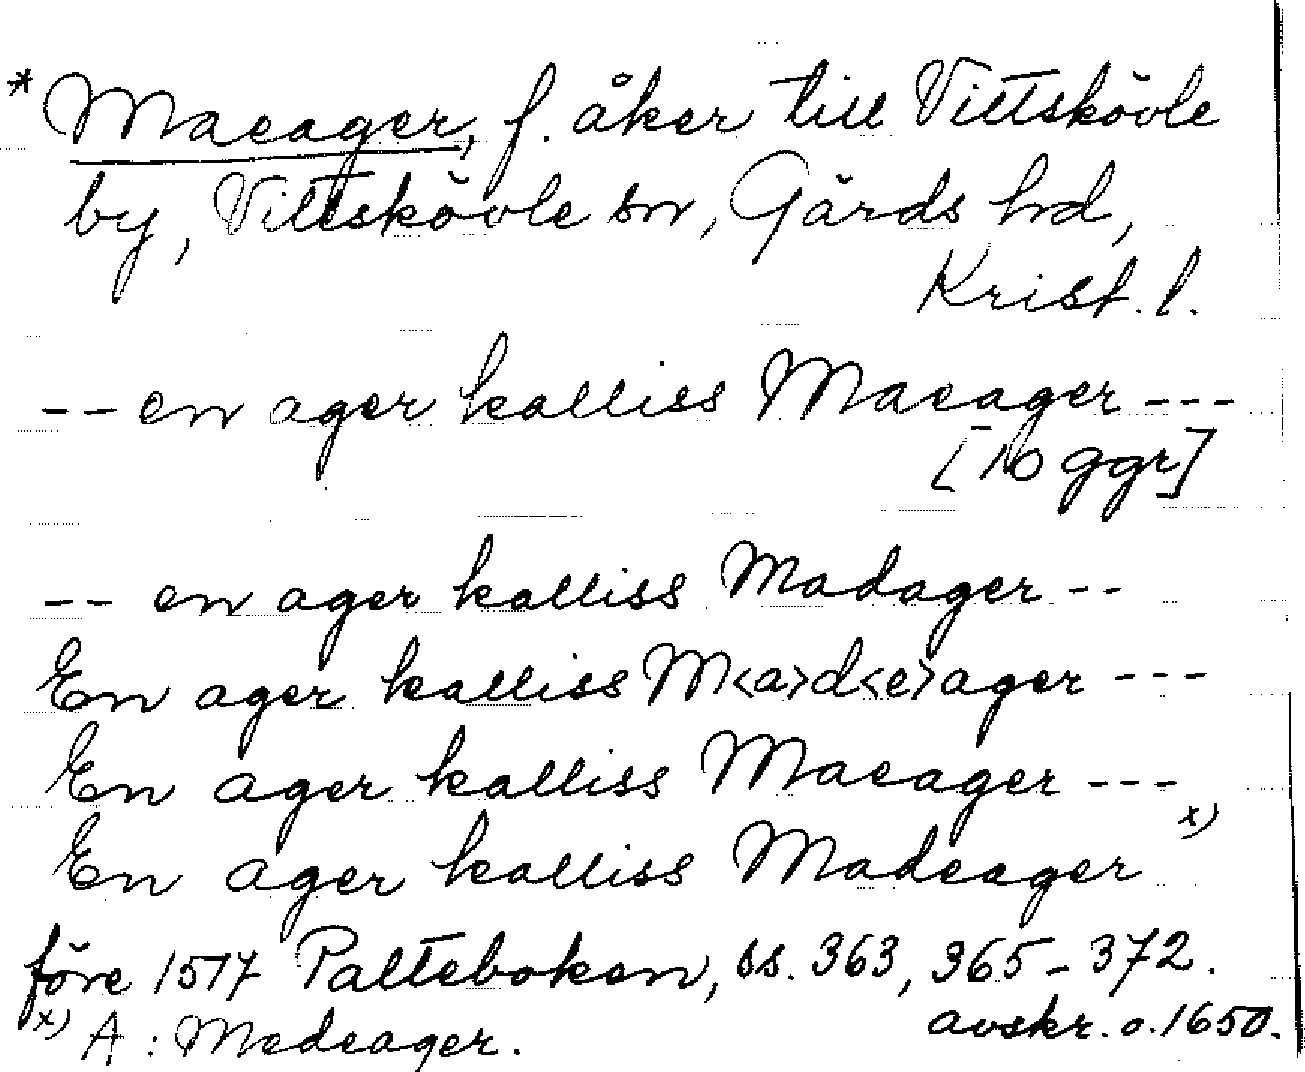 * Maeager, f. åker till Vittskövle
by, Vittskövle sn, Gärds hd,
Krist. l.
-- en ager kalliss Maeager ---
[10 ggr]
-- en ager kalliss Madager --
En ager kalliss M<a>d<e>ager ---
En ager kalliss Maeager ---
En ager kalliss Madeager x)
före 1517 Palteboken, ss. 363, 365-372.
avskr. o. 1650.
x) A: Medeager.